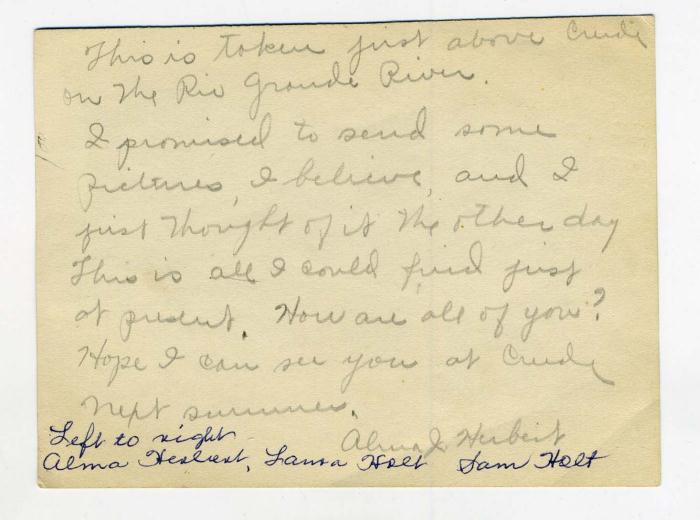 This is taken just above Creede
on the Rio Grande River.
I promised to send some
pictures, I believe, and I
just thought of it the other day
This is all I could find just
at present. How are all of you?
Hope I can see you at Creede
next summer.
Alma J Herbert
Left to right
Alma Herbert, Laura Holt Sam Holt